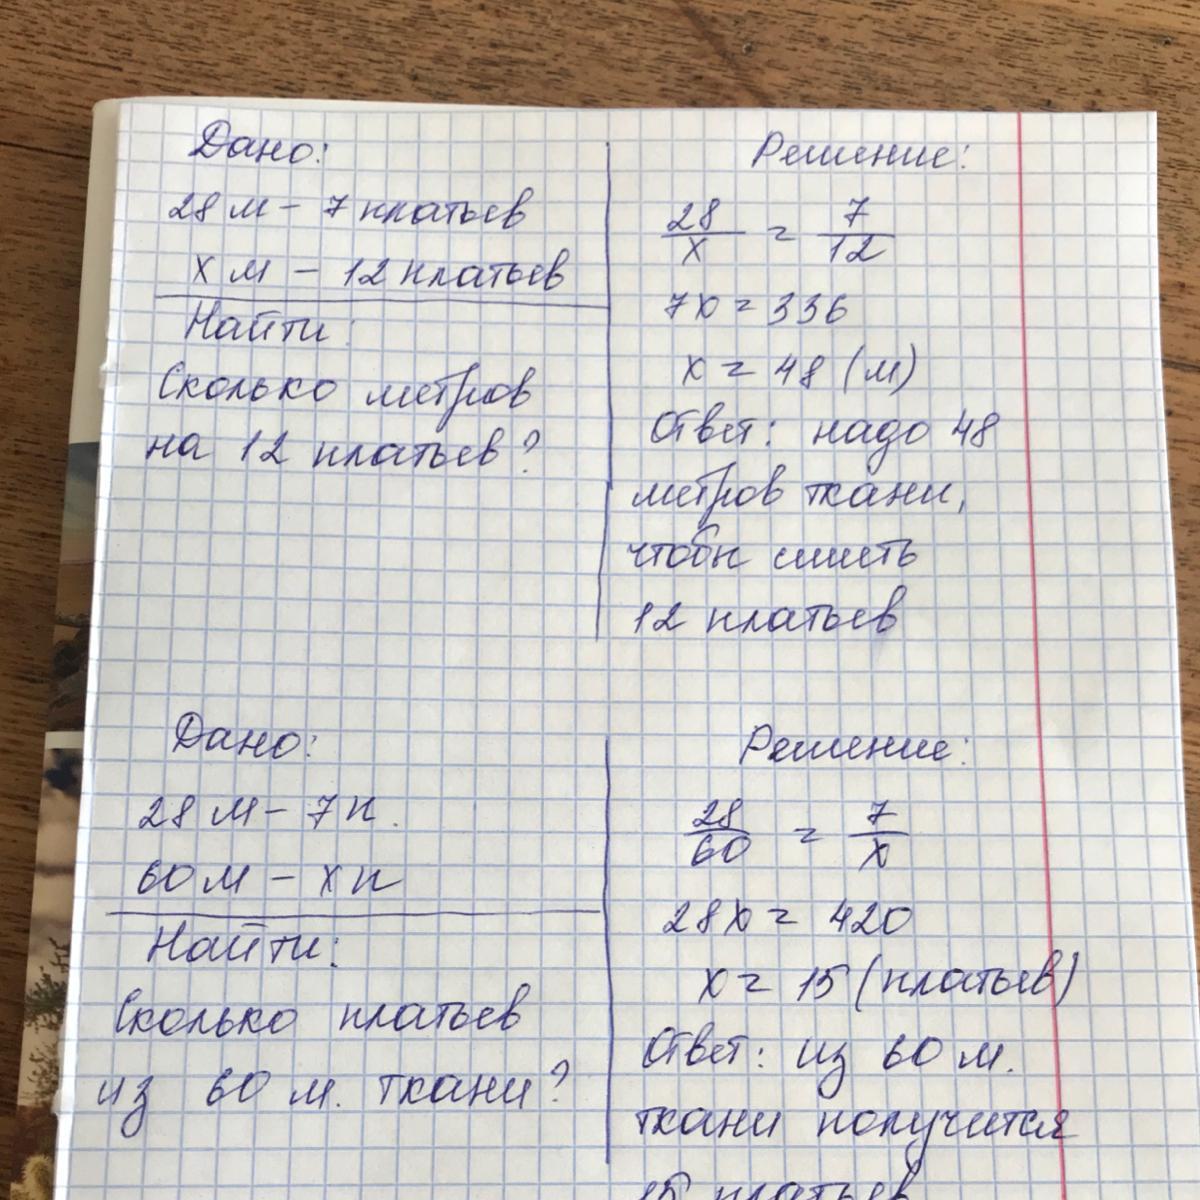 Дано:
28 м - 7 платьев
х м - 12 платьев
Найти:
Сколько метров
на 12 платьев?
Решение:
28/х = 7/12
7х = 336
х = 48 (м)
Ответ: надо 48
метров ткани,
чтобы сшить
12 платьев
Дано:
28 м - 7 п.
60 м - х п
Найти:
Сколько платьев
из 60 м. ткани?
Решение:
28/60 = 7/х
28х = 420
х = 15 (платьев)
Ответ: из 60 м.
ткани получится
15 платьев